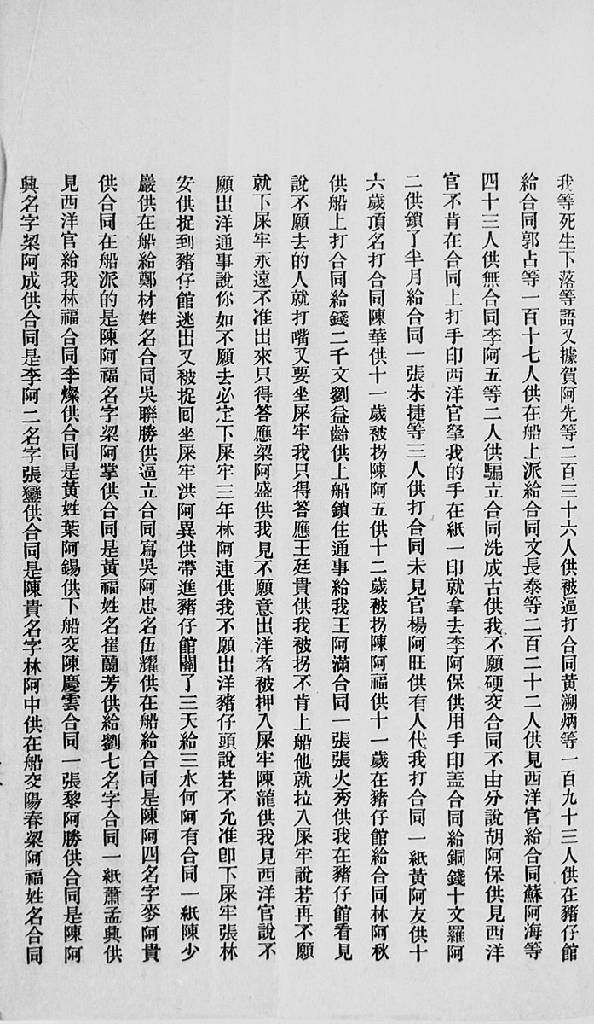 我等死生下落等語又據賀阿先等二百三十六人供被逼打合同黃瀏炳等一百九十三人供在豬仔館
給合同郭占等一百十七人供在船上派給合同文長泰等二百二十二人供見西洋官給合同蘇阿海等
四十三人供無合同李阿五等二人供騙立合同洗成古供我不願硬交合同不由分說胡阿保供見西洋
官不肯在合同上打手印西洋官拏我的手在紙一印就拿去李阿保供用手印盖合同給銅錢十文羅阿
二供鎖了半月給合同一張朱捷等三人供打合同未見官楊阿旺供有人代我打合同一紙黃阿友供十
六歲頂名打合同陳華供十一歲被拐陳阿五供十二歲被拐陳阿福供十一歲在豬仔館給合同林阿秋
供船上打合同給錢二千文劉益齡供上船鎖住通事給我王阿滿合同一張張火秀供我在豬仔館看見
說不願去的人就打嘴又要坐屎牢我只得答應王廷貴供我被拐不肯上船他就拉入屎牢說若再不願
就下屎牢永遠不准出來只得答應梁阿盛供我見不願意出洋者被押入屎牢陳龍供我見西洋官說不
願出洋通事說你如不願去必定下屎牢三年林阿連供我不願出洋豬仔頭說若不允准卽下屎牢張林
安供捉到豬仔館逃出又被捉回坐屎牢洪阿異供帶進豬仔館關了三天給三水何阿有合同一紙陳少
嚴供在船給鄭材姓名合同吳聯勝供逼立合同寫吳阿忠名伍耀供在船給合同是陳阿四名字麥阿貴
供合同在船派的是陳阿福名字梁阿掌供合同是黃福姓名崔蘭芳供給劉七名字合同一紙蕭孟興供
見西洋官給我林福合同李燦供合同是黃姓葉阿錫供下船交陳慶雲合同一張黎阿勝供合同是陳阿
興名字梁阿成供合同是李阿二名字張鑾供合同是陳貴名字林阿中供在船交陽春梁阿福姓名合同